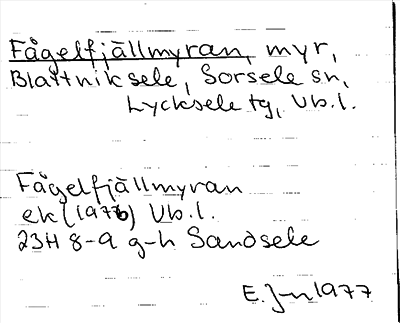 Fågelfjällmyran, myr,
Blattniksele, Sorsele sn,
Lycksele tg, Vb.l.
Fågelfjällmyran
ek (1976) Vb.l.
23H 8-9 g-h Sandsele
E. J-n 1977